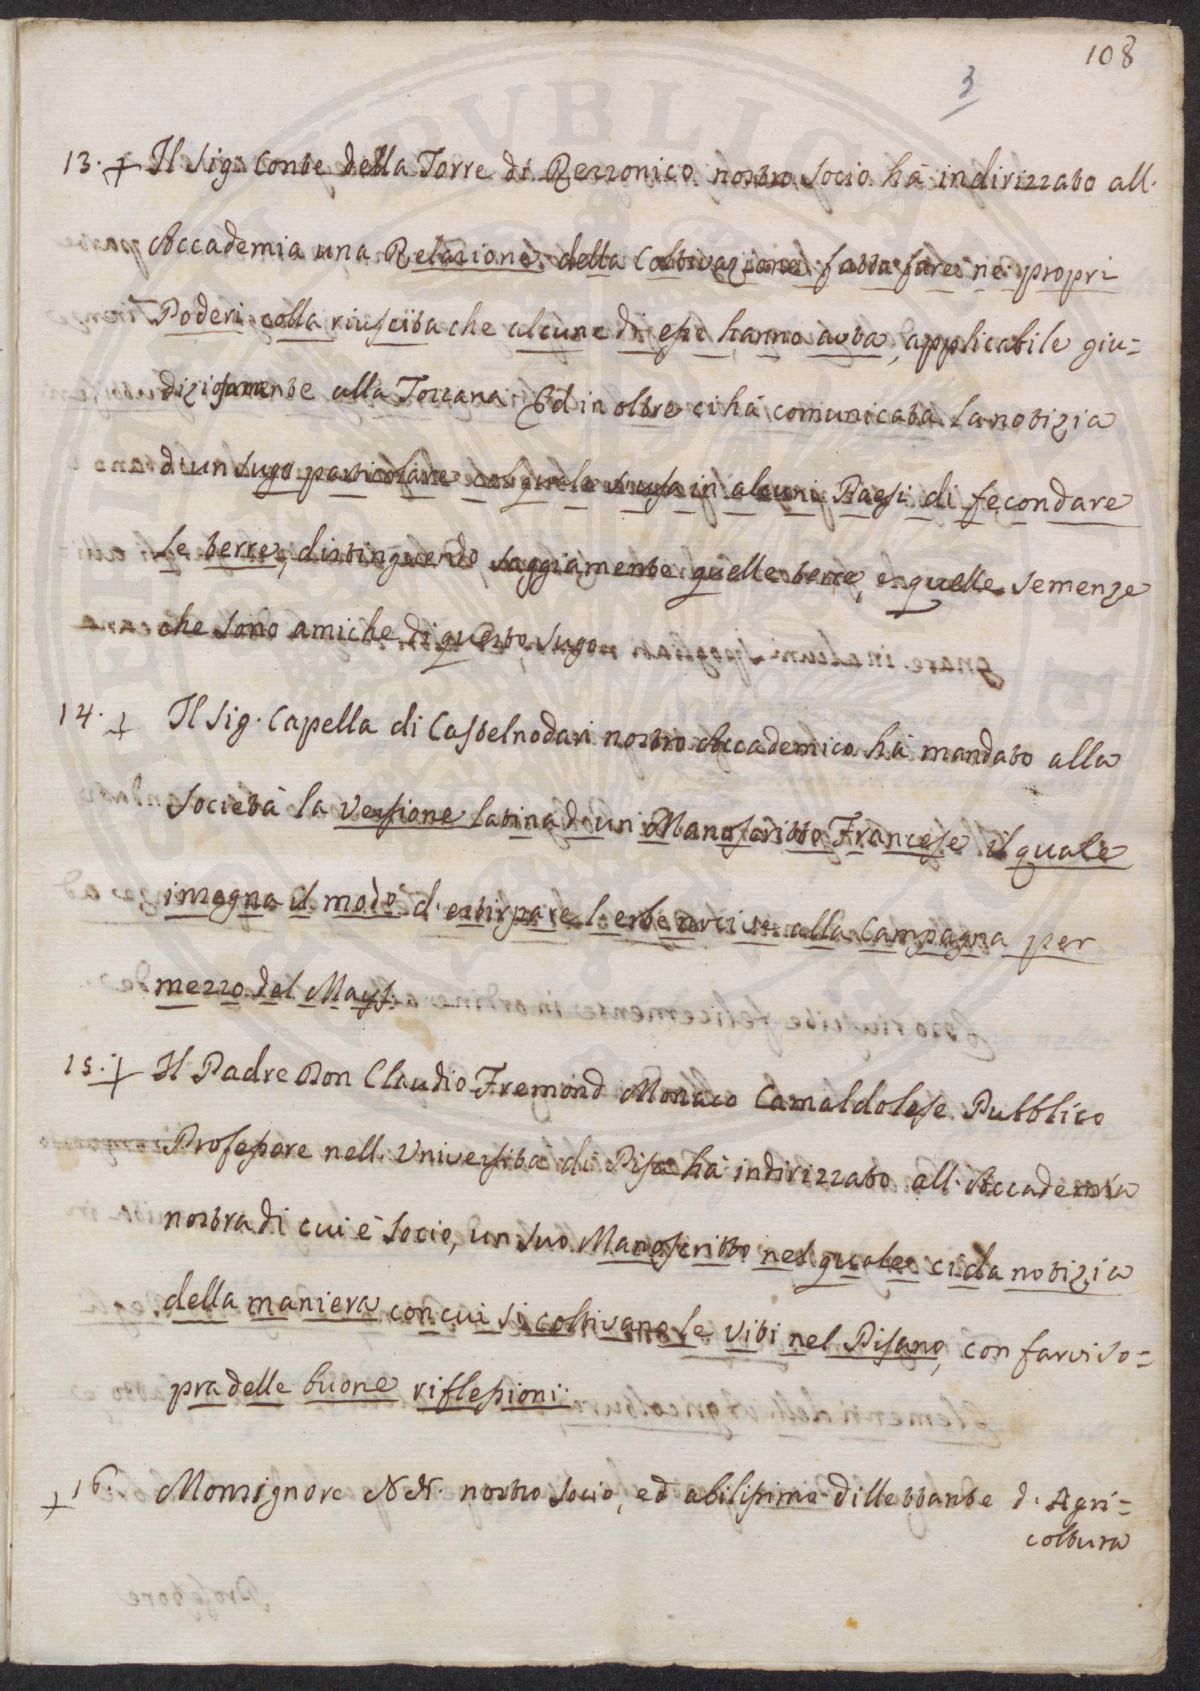 108
3
13. + Il Sig: Conte della Torre di Rezzonico nostro Socio hà indirizzato all'
Accademia una Relazione della Coltivazione fatta fare ne' propri
Poderi colla riuscita che alcune di esse hanno avta, applicabile giu=
diziosamente alla Toscana. Ed in oltre ci hà comunicata la notizia
di un Sugo particolare col quale si usa in alcuni Paesi di fecondare
le terre, distinguendo saggiamente quelle terre, e quelle Semenze
che sono amiche di questo sugo.
14. + Il Sig. Capella di Castelnodari nostro Accademico hà mandato alla
Società la Versione latina di un Manoscritto Francese il quale
insegna il modo d'estirpare l'erbe nocive alla Campagna per
mezzo del Mays.
15. + Il Padre Don Claudio Fremond Monaco Camaldolese Pubblico
Professore nell'Università di Pisa hà indirizzato all'Accademia
nostra di cui è Socio, un suo Manoscritto nel quale ci da notizia
della maniera con cui si coltivano le Viti nel Pisano, con farvi so=
pra delle buone riflessioni.
+ 16. Monsignore N.N. nostro Socio, ed abilissimo dillettante d'Agri=
coltura